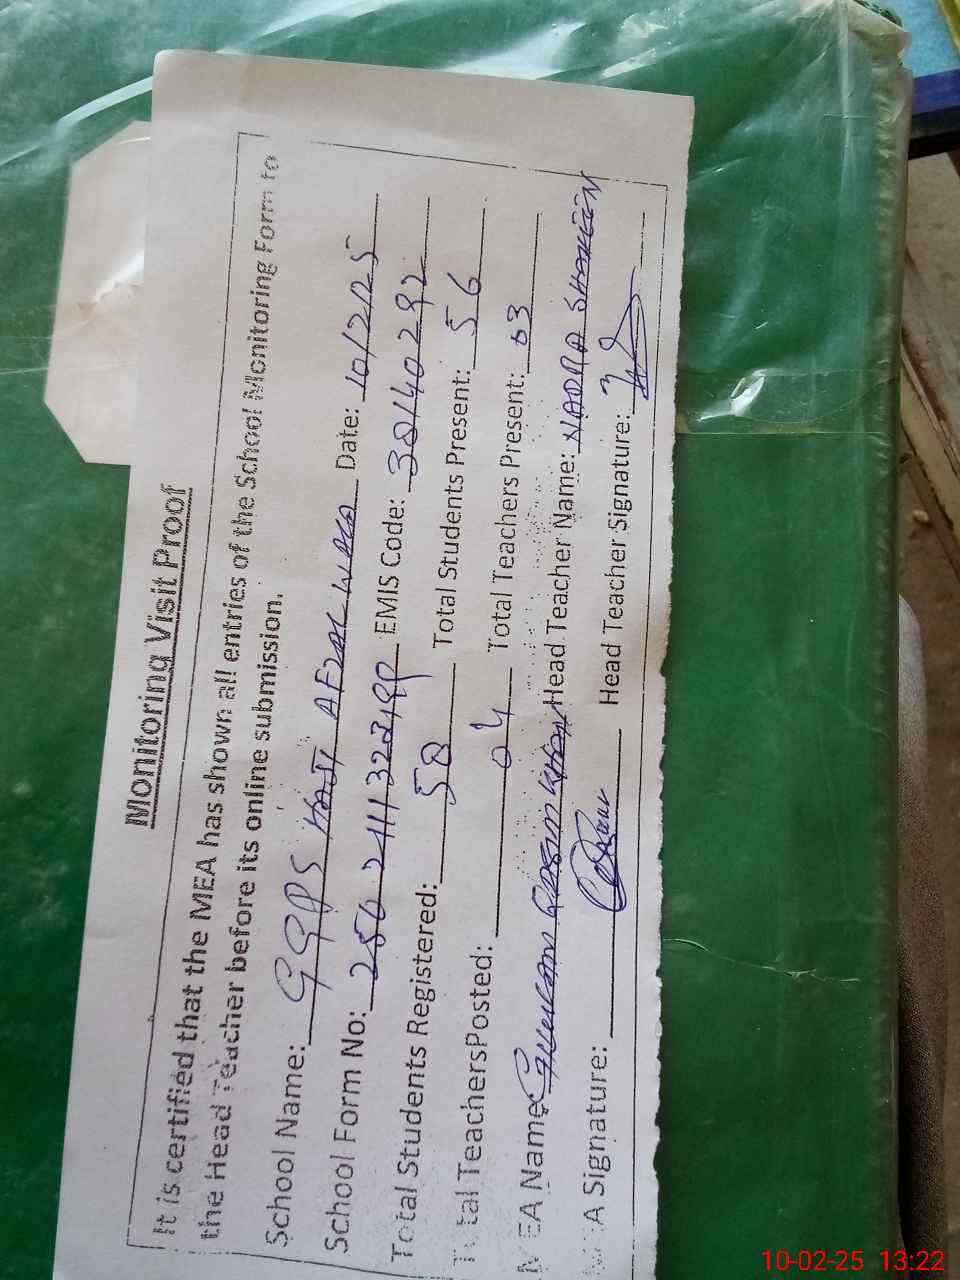 Monitoring Visit Proof
It is certified that the MEA has shown all entries of the School Monitoring Form to
the Head Teacher before its online submission.
School Name: GGPS HAJI AFZAL WALA Date: 10/2/25
School Form No: EMIS Code: 38140292
Total Students Registered: 58 Total Students Present: 56
Total TeachersPosted: 04 Total Teachers Present: 03
MEA Name: Head Teacher Name: NADRA SHAHEEN
MEA Signature: Head Teacher Signature:
10-02-25 13:22